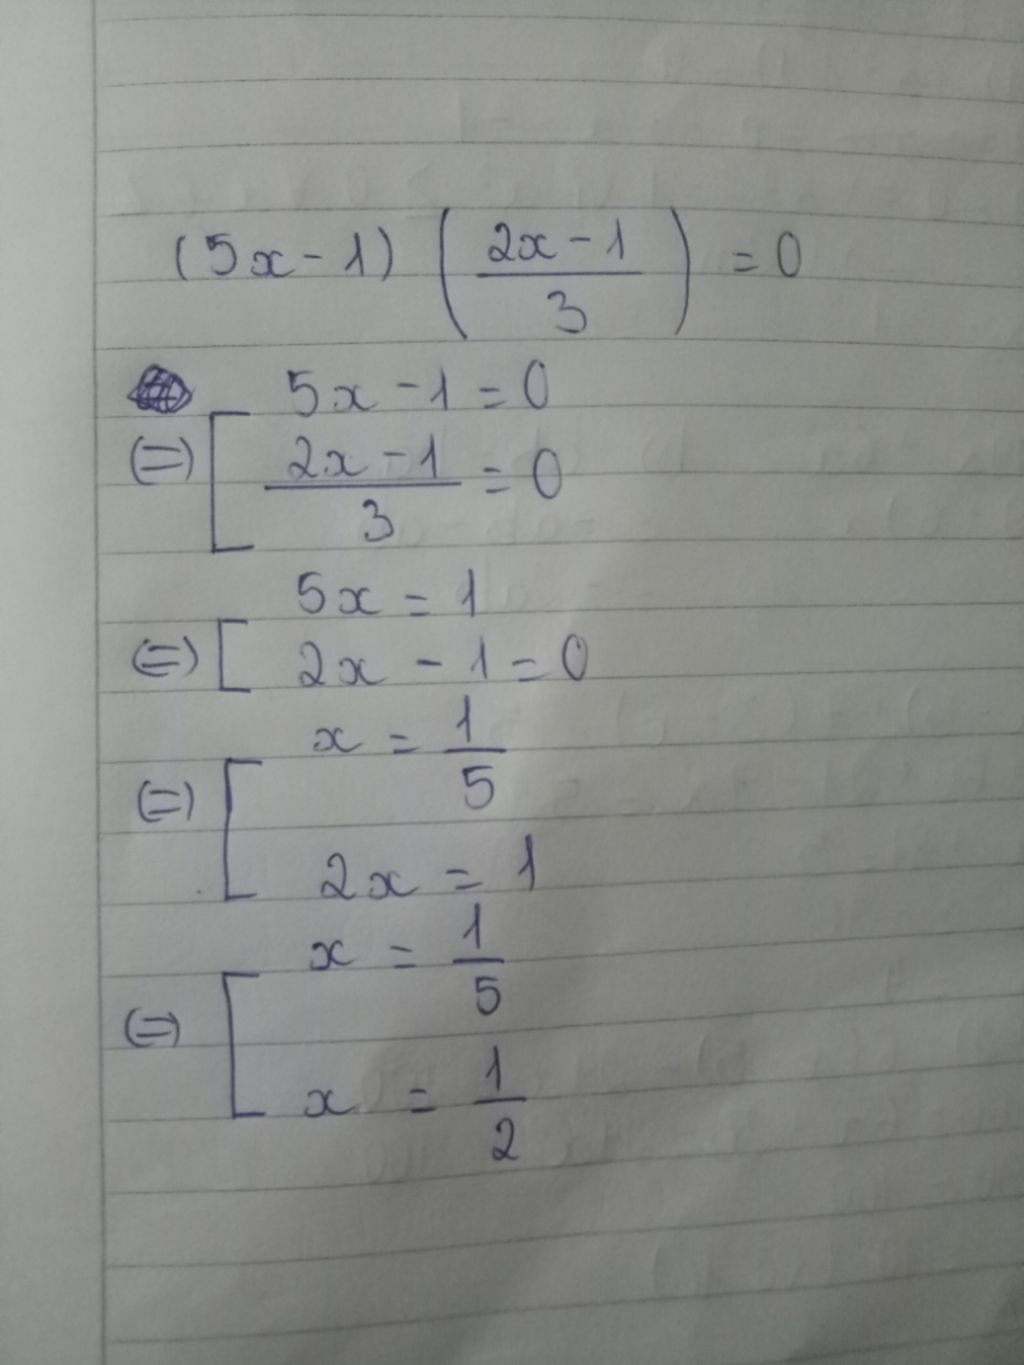 (5x - 1) ( (2x - 1)/3 ) = 0
5x - 1 = 0
(=) [ (2x - 1)/3 = 0
5x = 1
(=) [ 2x - 1 = 0
x = 1/5
(=) [
2x = 1
x = 1/5
(=) [
x = 1/2